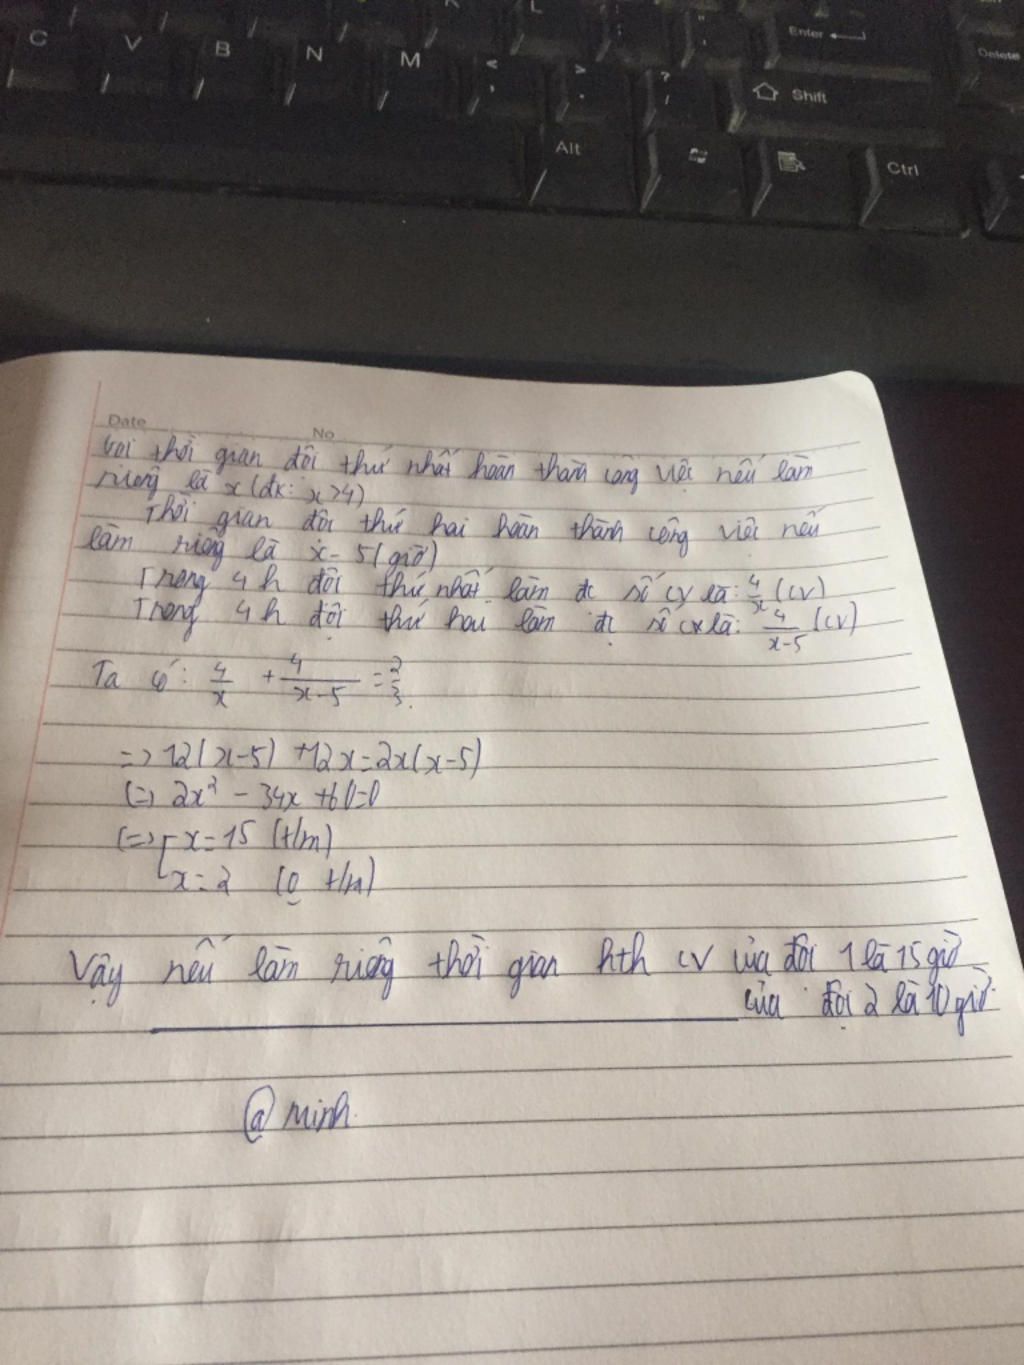 C V B N M K L
< , > . ? / " ' Enter Delete
Shift
Alt Ctrl
Date No
Gọi thời gian đội thứ nhất hoàn thành công việc nếu làm
riêng là x (đk: x>4)
Thời gian đội thứ hai hoàn thành công việc nếu
làm riêng là x-5 (giờ)
Trong 4h đội thứ nhất làm đc số cv là: 4/x (CV)
Trong 4h đội thứ hai làm đc số cv là: 4/(x-5) (CV)
Ta có: 4/x + 4/(x-5) = 2/3
=> 12(x-5) +12x=2x(x-5)
(=) 2x² - 34x +60=0
(=> [ x=15 (t/m)
x=2 (0 t/m)
Vậy nếu làm riêng thời gian hth cv của đội 1 là 15 giờ
của đội 2 là 10 giờ.
@ minh